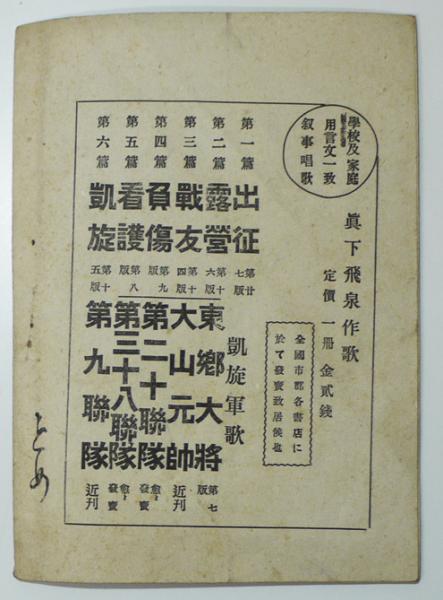 學校及家庭
用言文一致
叙事唱歌
眞下飛泉作歌
定價一册金貳錢
全國市郡各書店に
於て發賣致居候也
第一篇 出征 第廿七版
第二篇 露營 第十六版
第三篇 戰友 第十四版
第四篇 負傷 第九版
第五篇 看護 第八版
第六篇 凱旋 第十五版
凱旋軍歌
東鄉大將 第七版
大山元帥 近刊
第二十聯隊 愈〻發賣
第三十八聯隊 愈〻發賣
第九聯隊 近刊
とめ